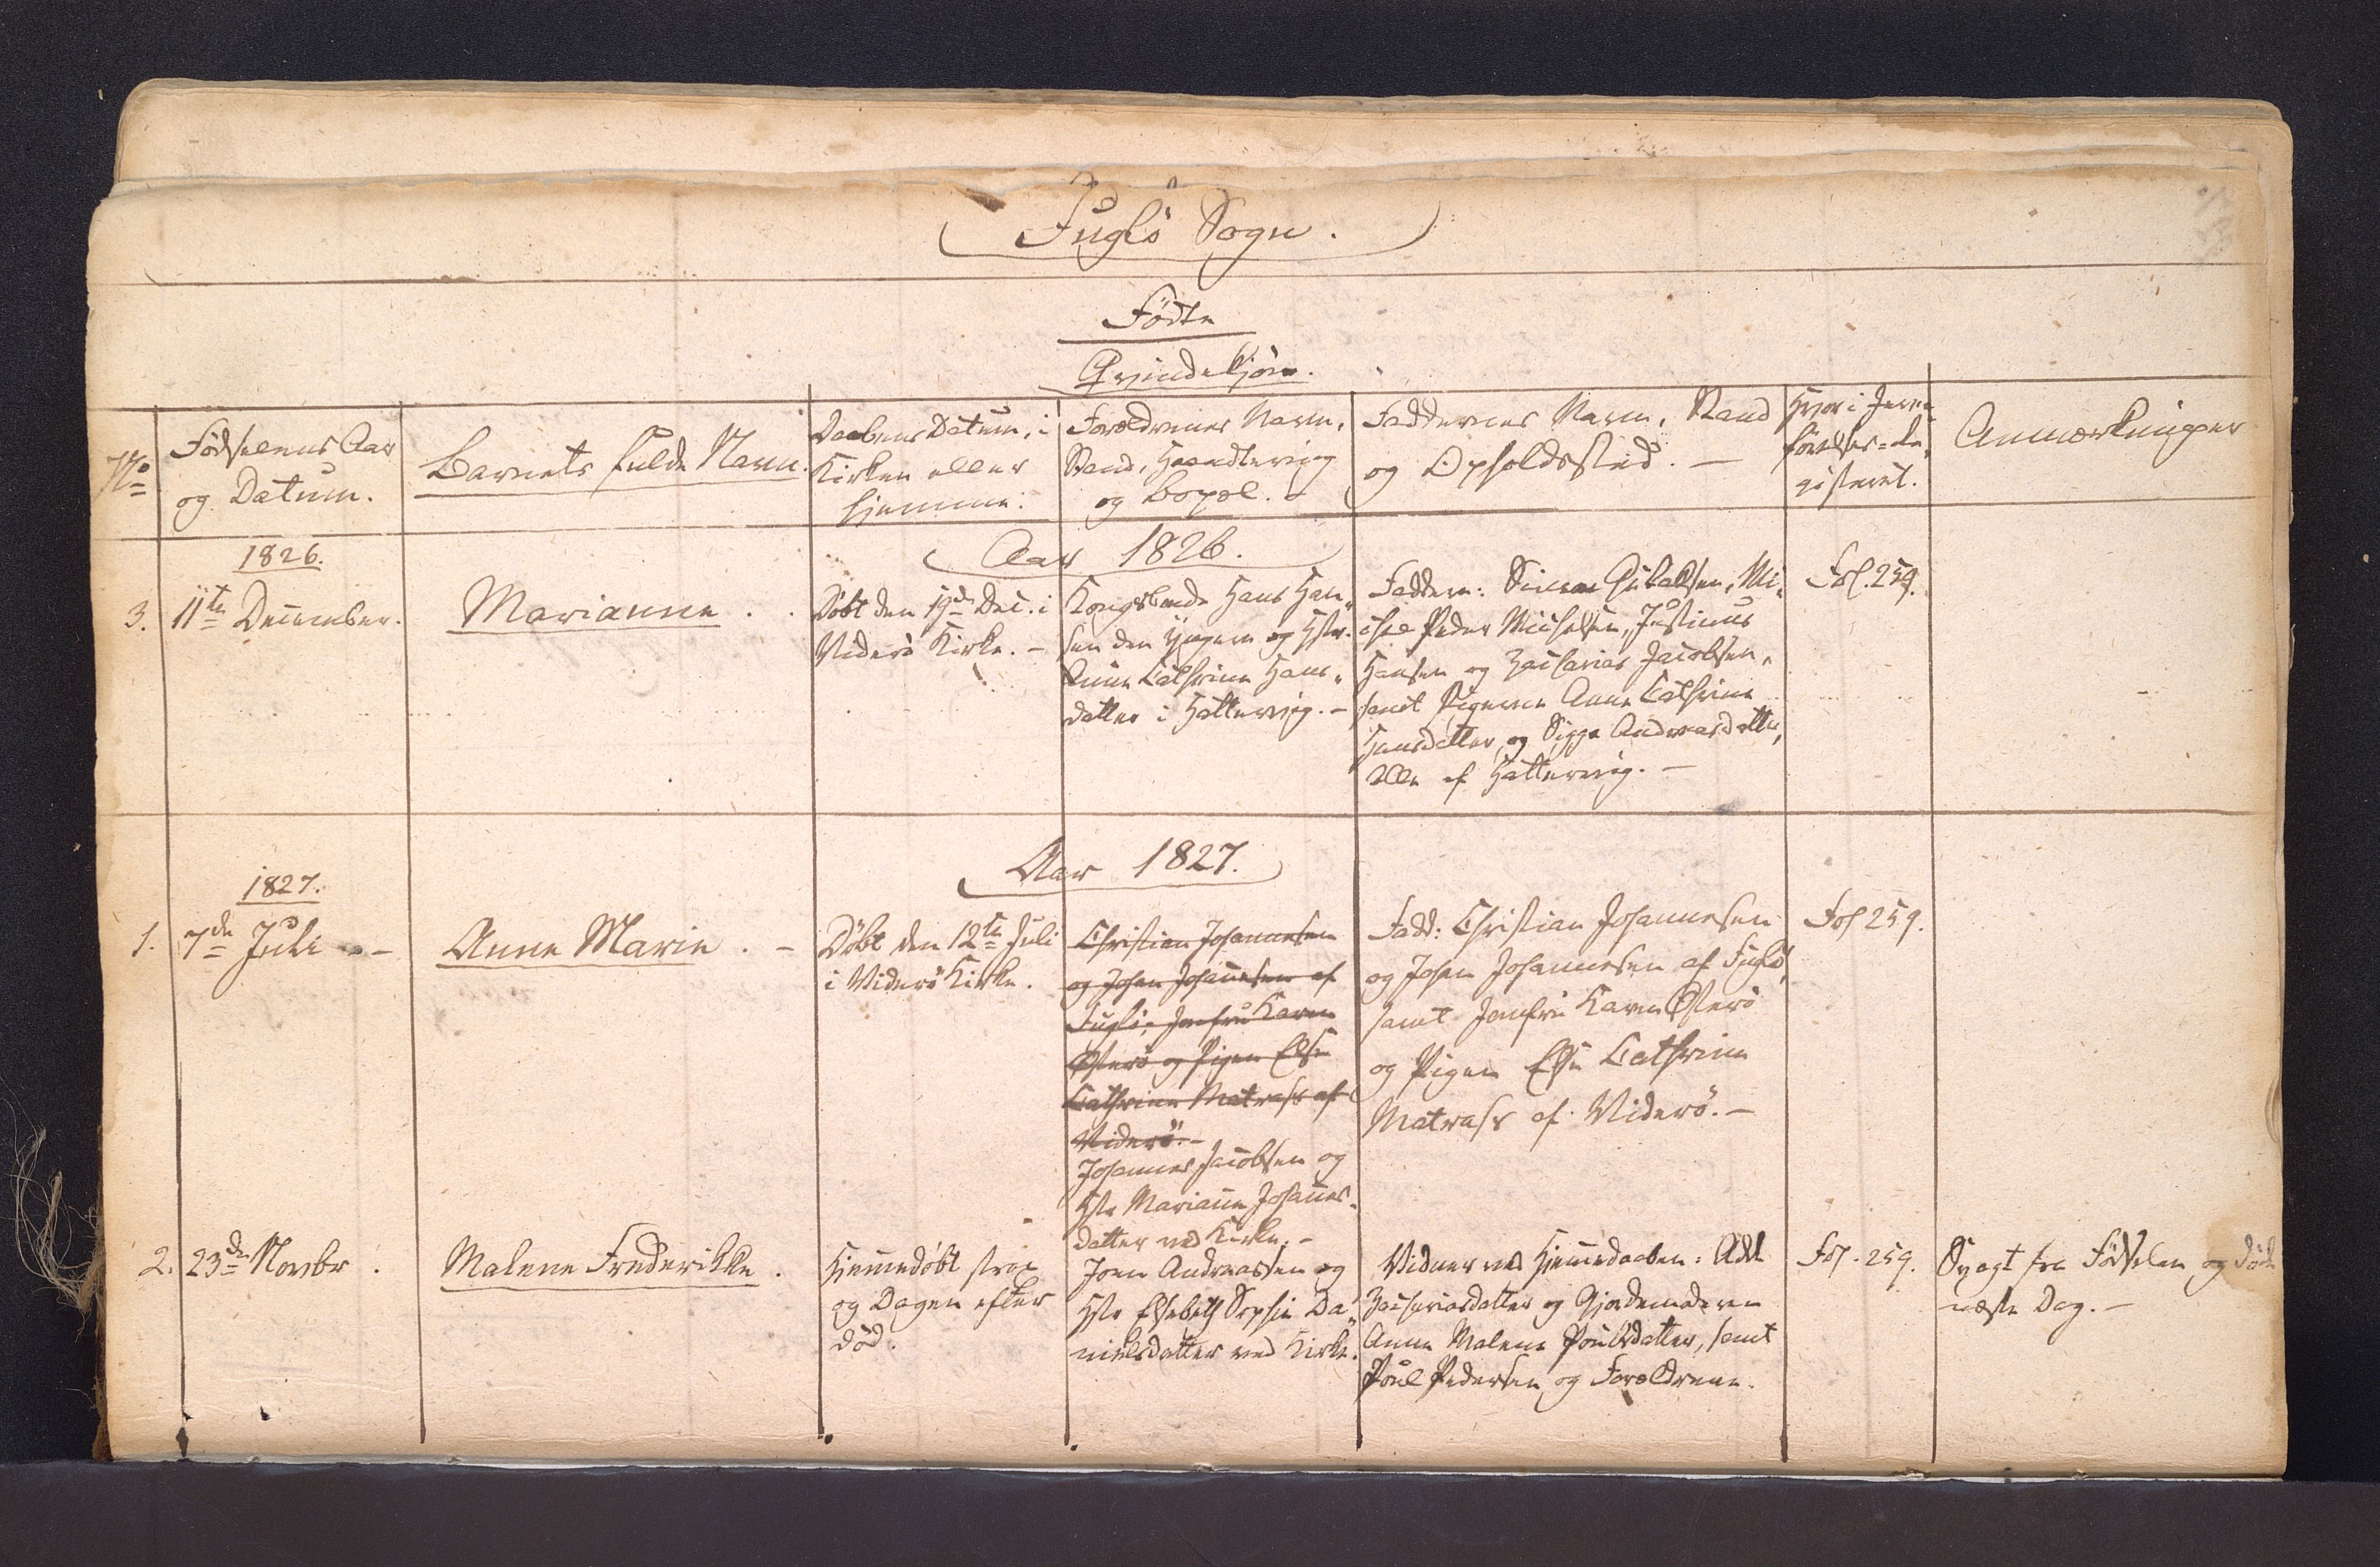 Fuglö Sogn.
Födte
Qvindekjön.
No
Födselens Aar
og Datum.
Barnets fulde Navn.
Daabens Datum, i
Kirken eller
hjemme.
Forældrenes Navn,
Stand, Haandtering
og Bopæl.
Faddernes Navn, Stand
og Opholdssted. —
Hvor i Jevn-
förelses-Re-
gisteret.
Anmærkninger
Aar 1826.
1826.
3.
11te December.
Marianne . .
Döbt den Dec. i
Viderö Kirke. —
Kongsbonde Hans Han-
sen den Yngere og Hstr.
Anne Cathrine Hans-
datter i Hattervig. —
Faddere: Simon Mi-
chel Peder Michelsen, Justinus
Hansen og Zacharias Jacobsen,
samt Pigerne Anne Cathrine
Hansdatter og Sigga Andreasdatter,
alle af Hattervig. —
Fol. 259.
Aar 1827.
1827.
1.
7de Juli -
Anne Marie . -
Döbt den 12te Juli
i Viderö Kirke.
Christian Johannesen
og Johan Johannesen af
Fuglö, Jomfru Karen
Österö og Pigen Else
Cathrine Matrass af
Viderö. -
Johannes Jacobsen og
Hstr Marianne Johannes-
datter ved Kirke. -
Fadd: Christian Johannesen
og Johan Johannesen af Fuglö,
samt Jomfru Karen Österö
og Pigen Else Cathrine
Matrass af Viderö. —
Fol 259.
2.
23de Novbr .
Malene Frederikke .
Hjemmedöbt strax
og Dagen efter
död.
Joen Andreassen og
Hstr Elsebeth Sophie Da-
nielsdatter ved Kirke.
Vidner ved Hjemmedaaben:
Zachariasdatter og Gjordemoderen
Anne Malene Poulsdatter, samt
Poul Pedersen og Forældrene.
Fol. 259.
Svagt fra Födselen og döde
næste Dag. —